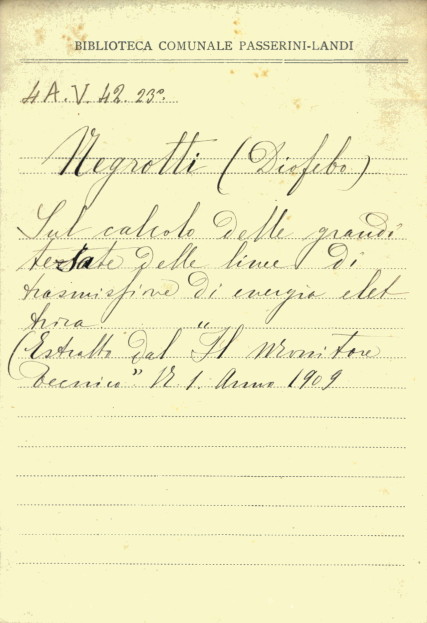 BIBLIOTECA COMUNALE PASSERINI-LANDI
4A.V.42.23º.
Negrotti (Diofebo)
Sul calcolo delle grandi
tesate delle linee di
trasmissione di energia elet
trica
(Estratto dal "Il Monitore
tecnico" N. 1. Anno 1909